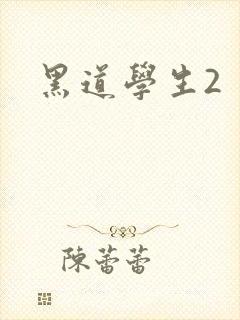 黑道學生2
陳蕾蕾